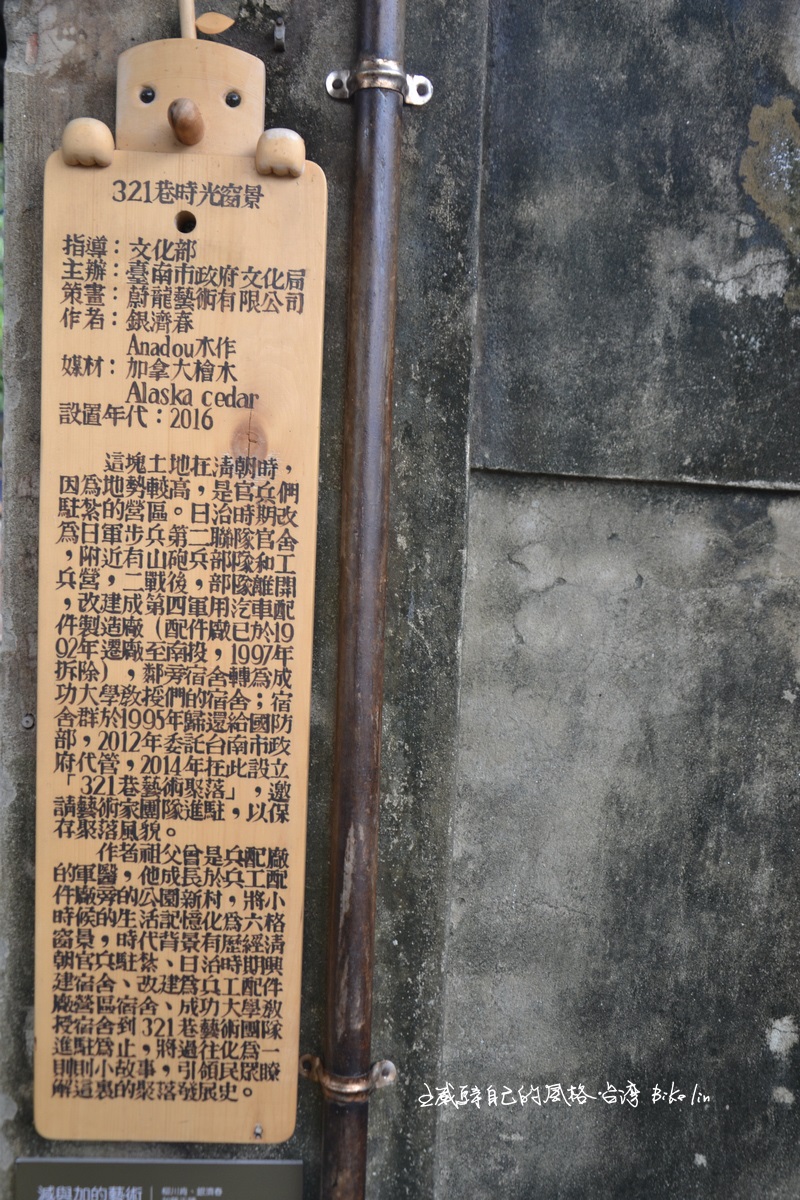 321巷時光窗景
指導：文化部
主辦：臺南市政府文化局
策畫：蔚龍藝術有限公司
作者：銀濟春
Anadou木作
媒材：加拿大檜木
Alaska cedar
設置年代：2016
這塊土地在清朝時，
因為地勢較高，是官兵們
駐紮的營區。日治時期改
為日軍步兵第二聯隊官舍
，附近有山砲兵部隊和工
兵營，二戰後，部隊離開
，改建成第四軍用汽車配
件製造廠（配件廠已於19
92年遷廠至南投，1997年
拆除），鄰旁宿舍轉為成
功大學教授們的宿舍；宿
舍群於1995年歸還給國防
部，2012年委託台南市政
府代管，2014年在此設立
「321巷藝術聚落」，邀
請藝術家團隊進駐，以保
存聚落風貌。
作者祖父曾是兵配廠
的軍醫，他成長於兵工配
件廠旁的公園新村，將小
時候的生活記憶化為六格
窗景，時代背景有歷經清
朝官兵駐紮、日治時期興
建宿舍、改建為兵工配件
廠營區宿舍、成功大學教
授宿舍到321巷藝術團隊
進駐為止，將過往化為一
則則小故事，引領民眾瞭
解這裏的聚落發展史。
自己的風格 台灣 Biko lin
減與加的藝術